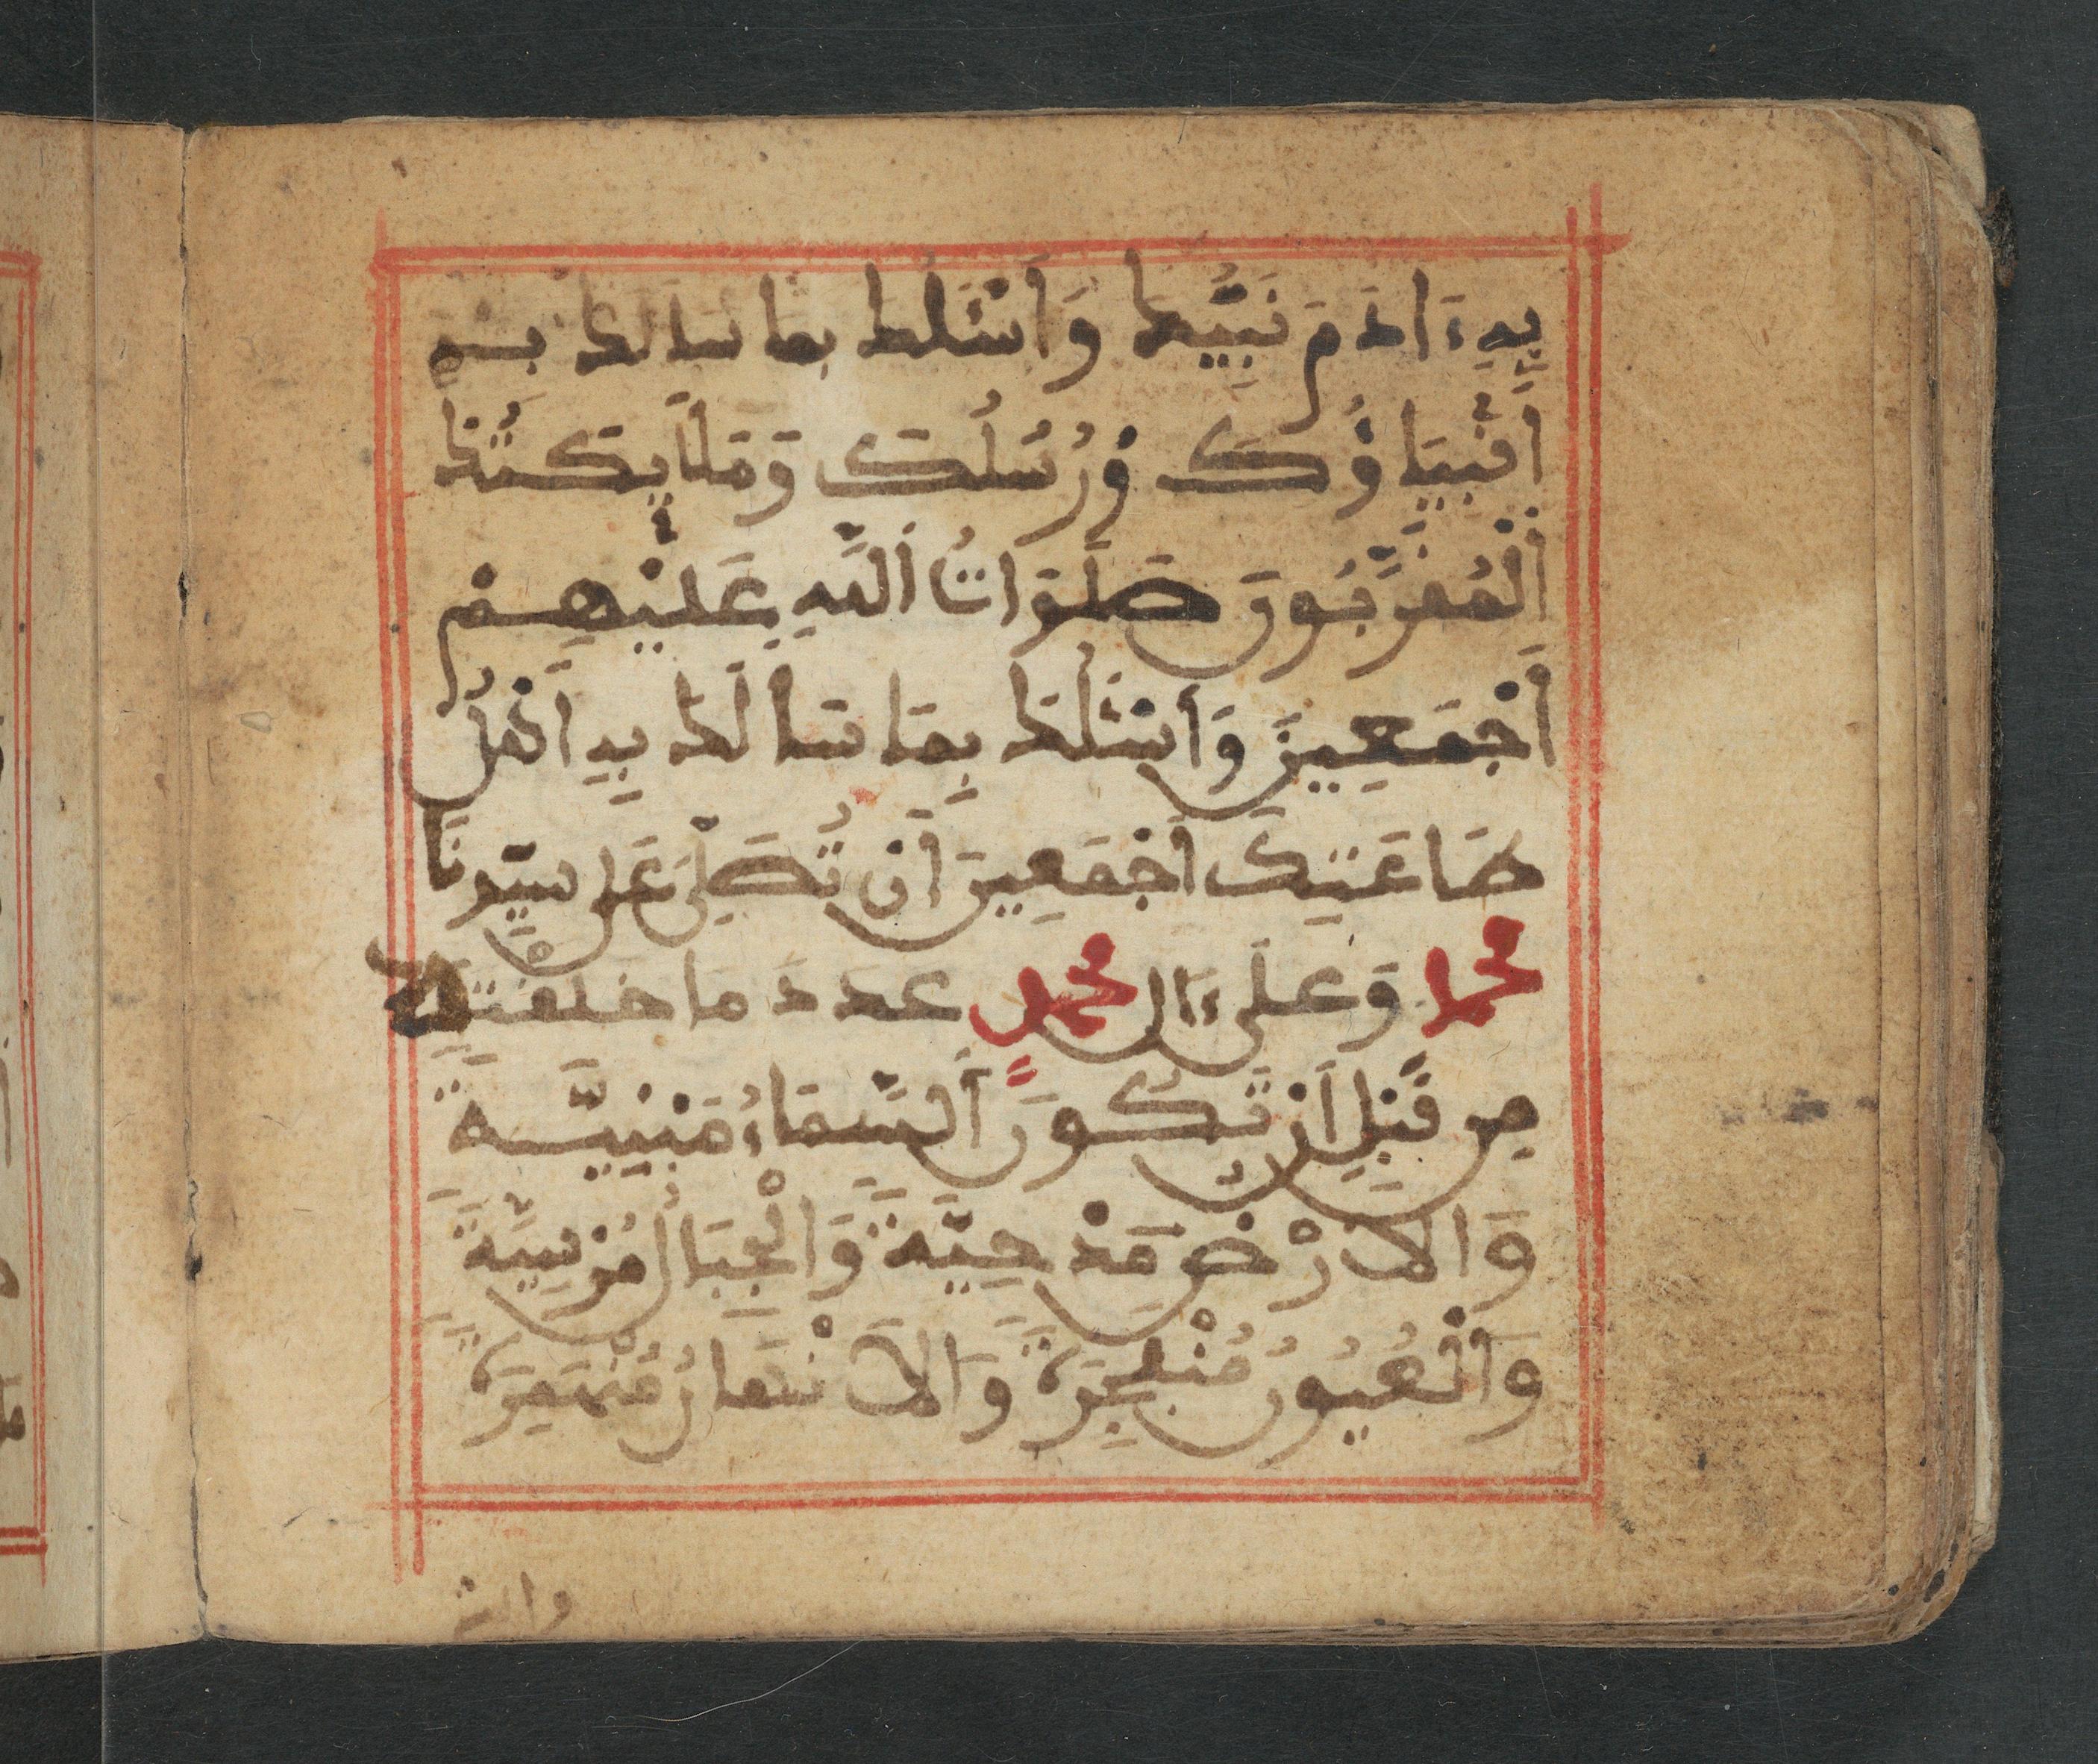 بِهِ ءَادَمَ نَبِيُّكَ وَاَسْئَلُكَ بِمَا سَاَلَكَ بِهِ
أَنْبِيَاؤُكَ وَرُسُلُكَ وَمَلَايِكَتُكَ
اَلْمُقَرَّبُونَ صَلَوَاتُ اَللَّهِ عَلَيْهِمْ
أَجْمَعِينَ وَأَسْئَلُكَ بِمَا سَاَلَكَ بِهِ اَهْلُ
طَاعَتِكَ اَجْمَعِينَ اَنْ تُصَلِّيَ عَلَى سَيِّدِنَا
محمد وَعَلَى ءَالِ محمدٍ عَدَدَ مَا خَلَقْتَهُ
مِن قَبْلِ اَن تَكُونَ اَلسَّمَاءُ مَبْنِيَّةً
وَالاَرْضُ مَدْحِيَّةً وَالْجِبَالُ مُرْسِيَةً
وَالْعُيُونُ مُنْفَجِرَةً وَالاَنْهَارُ مُنْهَمِرَةً
والش